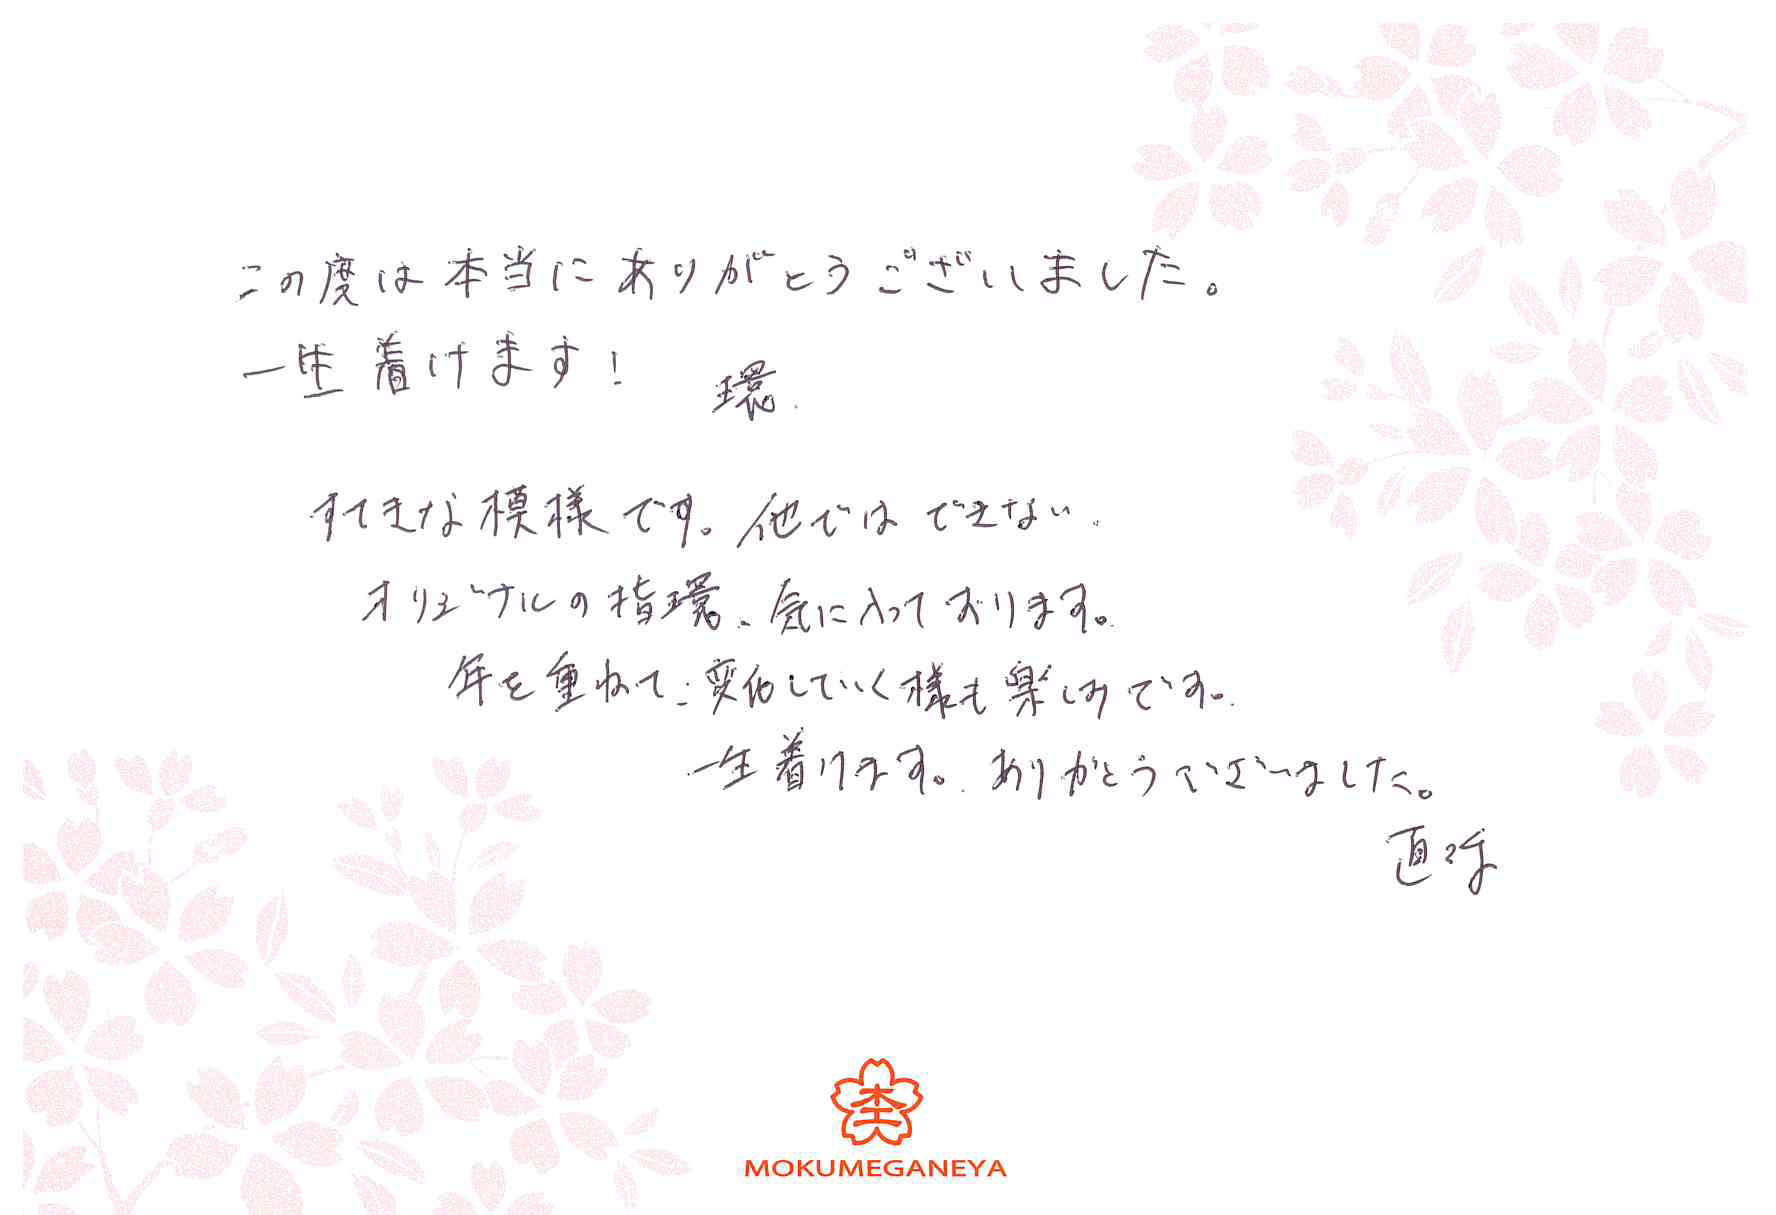 この度は本当にありがとうございました。
一生着けます!
環
すてきな模様です。他ではできない
オリジナルの指環、気に入っております。
年を重ねて、変化していく様も楽しみです。
一生着けます。ありがとうございました。
MOKUMEGANEYA